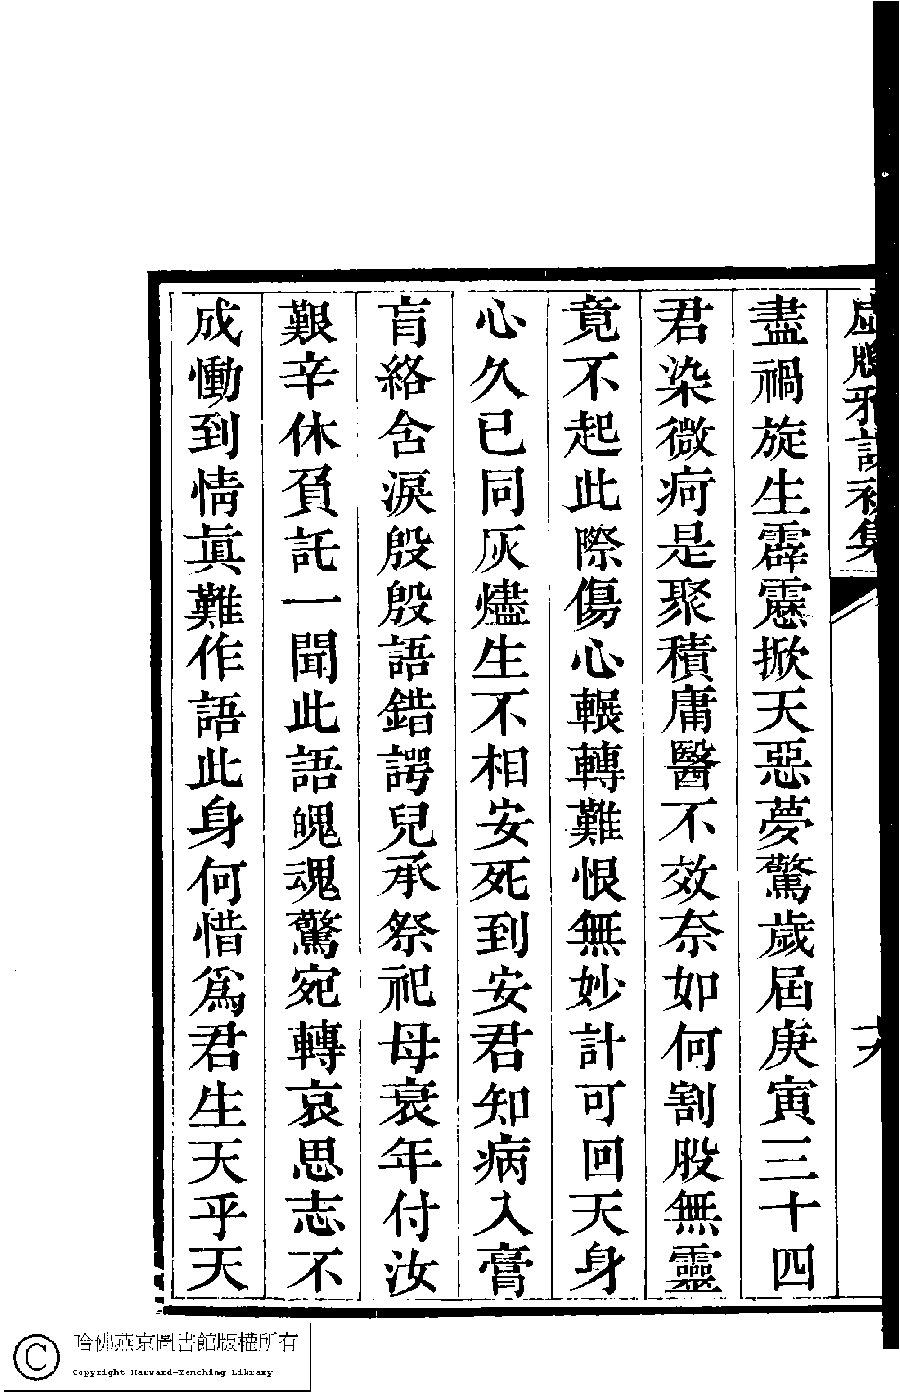 集
盡禍旋生霹靂掀天惡夢驚歲屆庚寅三十四
君染微疴是聚積庸醫不效奈如何割股無靈
竟不起此際傷心輾轉難恨無妙計可回天身
心久已同灰燼生不相安死到安君知病入膏
肓絡含淚殷殷語錯諤兒承祭祀母衰年付汝
艱辛休負託一聞此語魄魂驚宛轉哀思志不
成慟到情眞難作語此身何惜爲君生天乎天
哈佛燕京圖書館版權所有
Copyright Harvard-Yenching Library